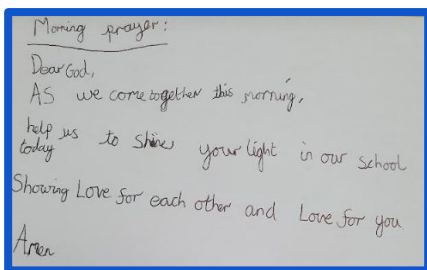 Morning prayer:
Dear God,
As we come together this morning,
help us to shine your light in our school
today
Showing Love for each other and Love for you
Amen